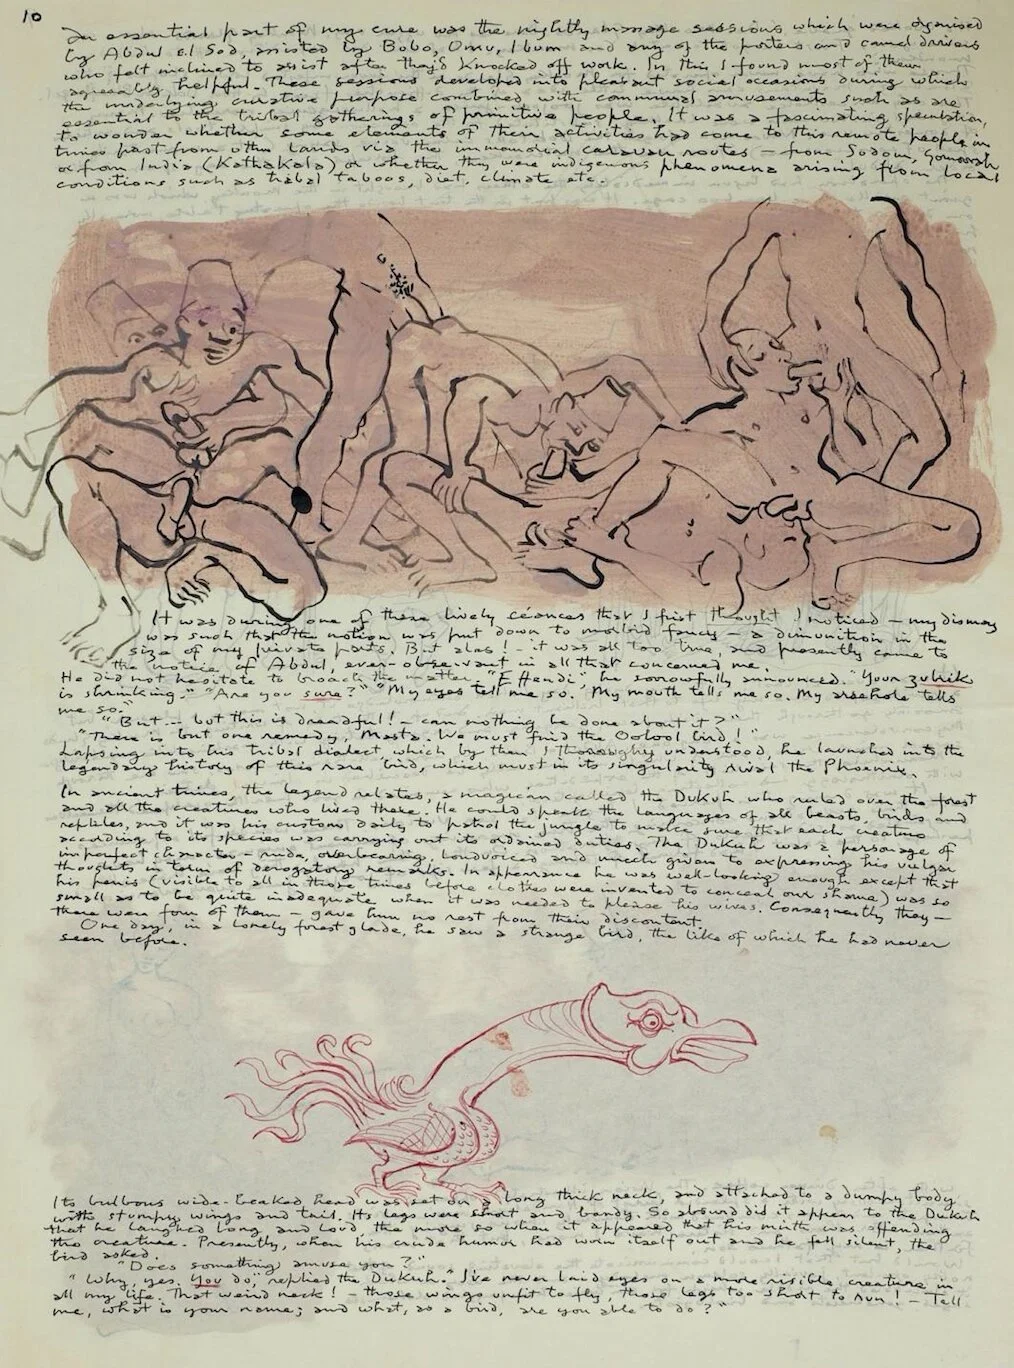 10
An essential part of my cure was the nightly massage sessions which were organised
by Abdul el Sod, assisted by Bobo, Omu, Ibum and any of the porters and camel drivers
who felt inclined to assist after they'd knocked off work. In this I found most of them
agreeably helpful. These sessions developed into pleasant social occasions during which
the underlying curative purpose combined with communal amusements such as are
essential to the tribal gatherings of primitive people. It was a fascinating speculation,
to wonder whether some elements of their activities had come to this remote people in
times past from other lands via the immemorial caravan routes – from Sodom, Gomorrah,
or from India (Kathakala) or whether they were indigenous phenomena arising from local
conditions such as tribal taboos, diet, climate etc.
It was during one of these lively céances that I first thought I noticed – my dismay
was such that the notion was put down to morbid fancy – a diminution in the
size of my private parts. But alas! – it was all too true, and presently came to
the notice of Abdul, ever-observant in all that concerned me.
He did not hesitate to broach the matter. "Effendi", he sorrowfully announced. "Your zubrik
is shrinking." "Are you sure?" "My eyes tell me so. My mouth tells me so. My arsehole tells
me so."
"But – but this is dreadful! – can nothing be done about it?"
"There is but one remedy, Masta. We must find the Oolool bird!"
Lapsing into his tribal dialect, which by then I thoroughly understood, he launched into the
legendary history of this rare bird, which must in its singularity rival the Phoenix.
In ancient times, the legend relates, a magician called the Dukuh who ruled over the forest
and all the creatures who lived there. He could speak the languages of all beasts, birds and
reptiles, and it was his custom daily to patrol the jungle to make sure that each creature
according to its species was carrying out its ordained duties. The Dukuh was a personage of
imperfect character – rude, overbearing, loudvoiced and much given to expressing his vulgar
thoughts in term of derogatory remarks. In appearance he was well-looking enough except that
his penis (visible to all in those times before clothes were invented to conceal our shame) was so
small as to be quite inadequate when it was needed to please his wives. Consequently they –
there were four of them – gave him no rest from their discontent.
One day, in a lonely forest glade, he saw a strange bird, the like of which he had never
seen before.
Its bulbous wide-beaked head was set on a long thick neck, and attached to a dumpy body
with stumpy wings and tail. Its legs were short and bandy. So absurd did it appear to the Dukuh
that he laughed long and loud, the more so when it appeared that his mirth was offending
the creature. Presently, when his crude humor had worn itself out and he fell silent, the
bird asked.
"Does something amuse you?"
"Why, yes. You do," replied the Dukuh. "I've never laid eyes on a more risible creature in
all my life. That weird neck! – those wings unfit to fly, those legs too short to run! – Tell
me, what is your name; and what, as a bird, are you able to do?"